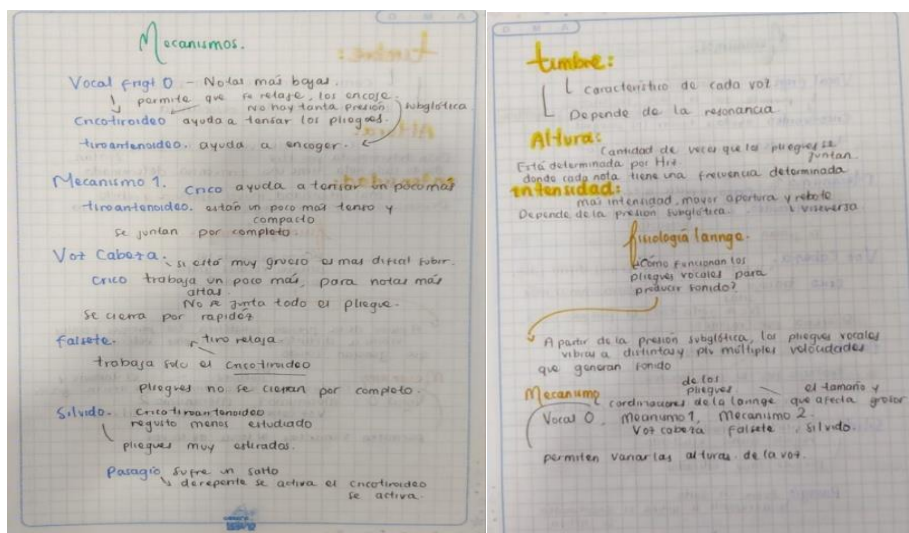 Mecanismos.
Vocal frigt 0 - Notas más bajas.
permite que se relaje, los encoje.
No hay tanta presión subglótica
Cricotiroideo ayuda a tensar los pliegues.
tiroaritenoideo. ayuda a encoger.
Mecanismo 1. Crico ayuda a tensar un poco más
tiroaritenoideo. están un poco más tenso y
compacto
se juntan por completo
Voz Cabeza. si está muy grueso es mas dificil subir.
Crico trabaja un poco más, para notas más
altas.
No se junta todo el pliegue.
se cierra por rapidéz
Falsete. tiro relaja
trabaja solo el cricotiroideo
pliegues no se cierran por completo.
Silvido. Cricotiroaritenoideo
registro menos estudiado
pliegues muy estirados.
Pasagio sufre un salto
derepente se activa el cricotiroideo
se activa.
timbre:
característico de cada voz
Depende de la resonancia
Altura:
Cantidad de veces que los pliegues se
juntan.
Está determinada por Hrz
donde cada nota tiene una frecuencia determinada
intensidad:
más intenidad, mayor apertura y rebote
Depende de la presión subglótica. viseversa
fisiología laringe.
¿Cómo funcionan los
pliegues vocales para
producir sonido?
A partir de la presión subglótica, los pliegues vocales
vibras a distintas y múltiples velocidades
que generan sonido
Mecanismo
de los
pliegues el tamaño y
cordinaciones de la laringe que afecta grosor
Vocal 0, Meanumo 1, Mecanismo 2.
Voz cabeza falsete silvido.
permiten variar las alturas de la voz.